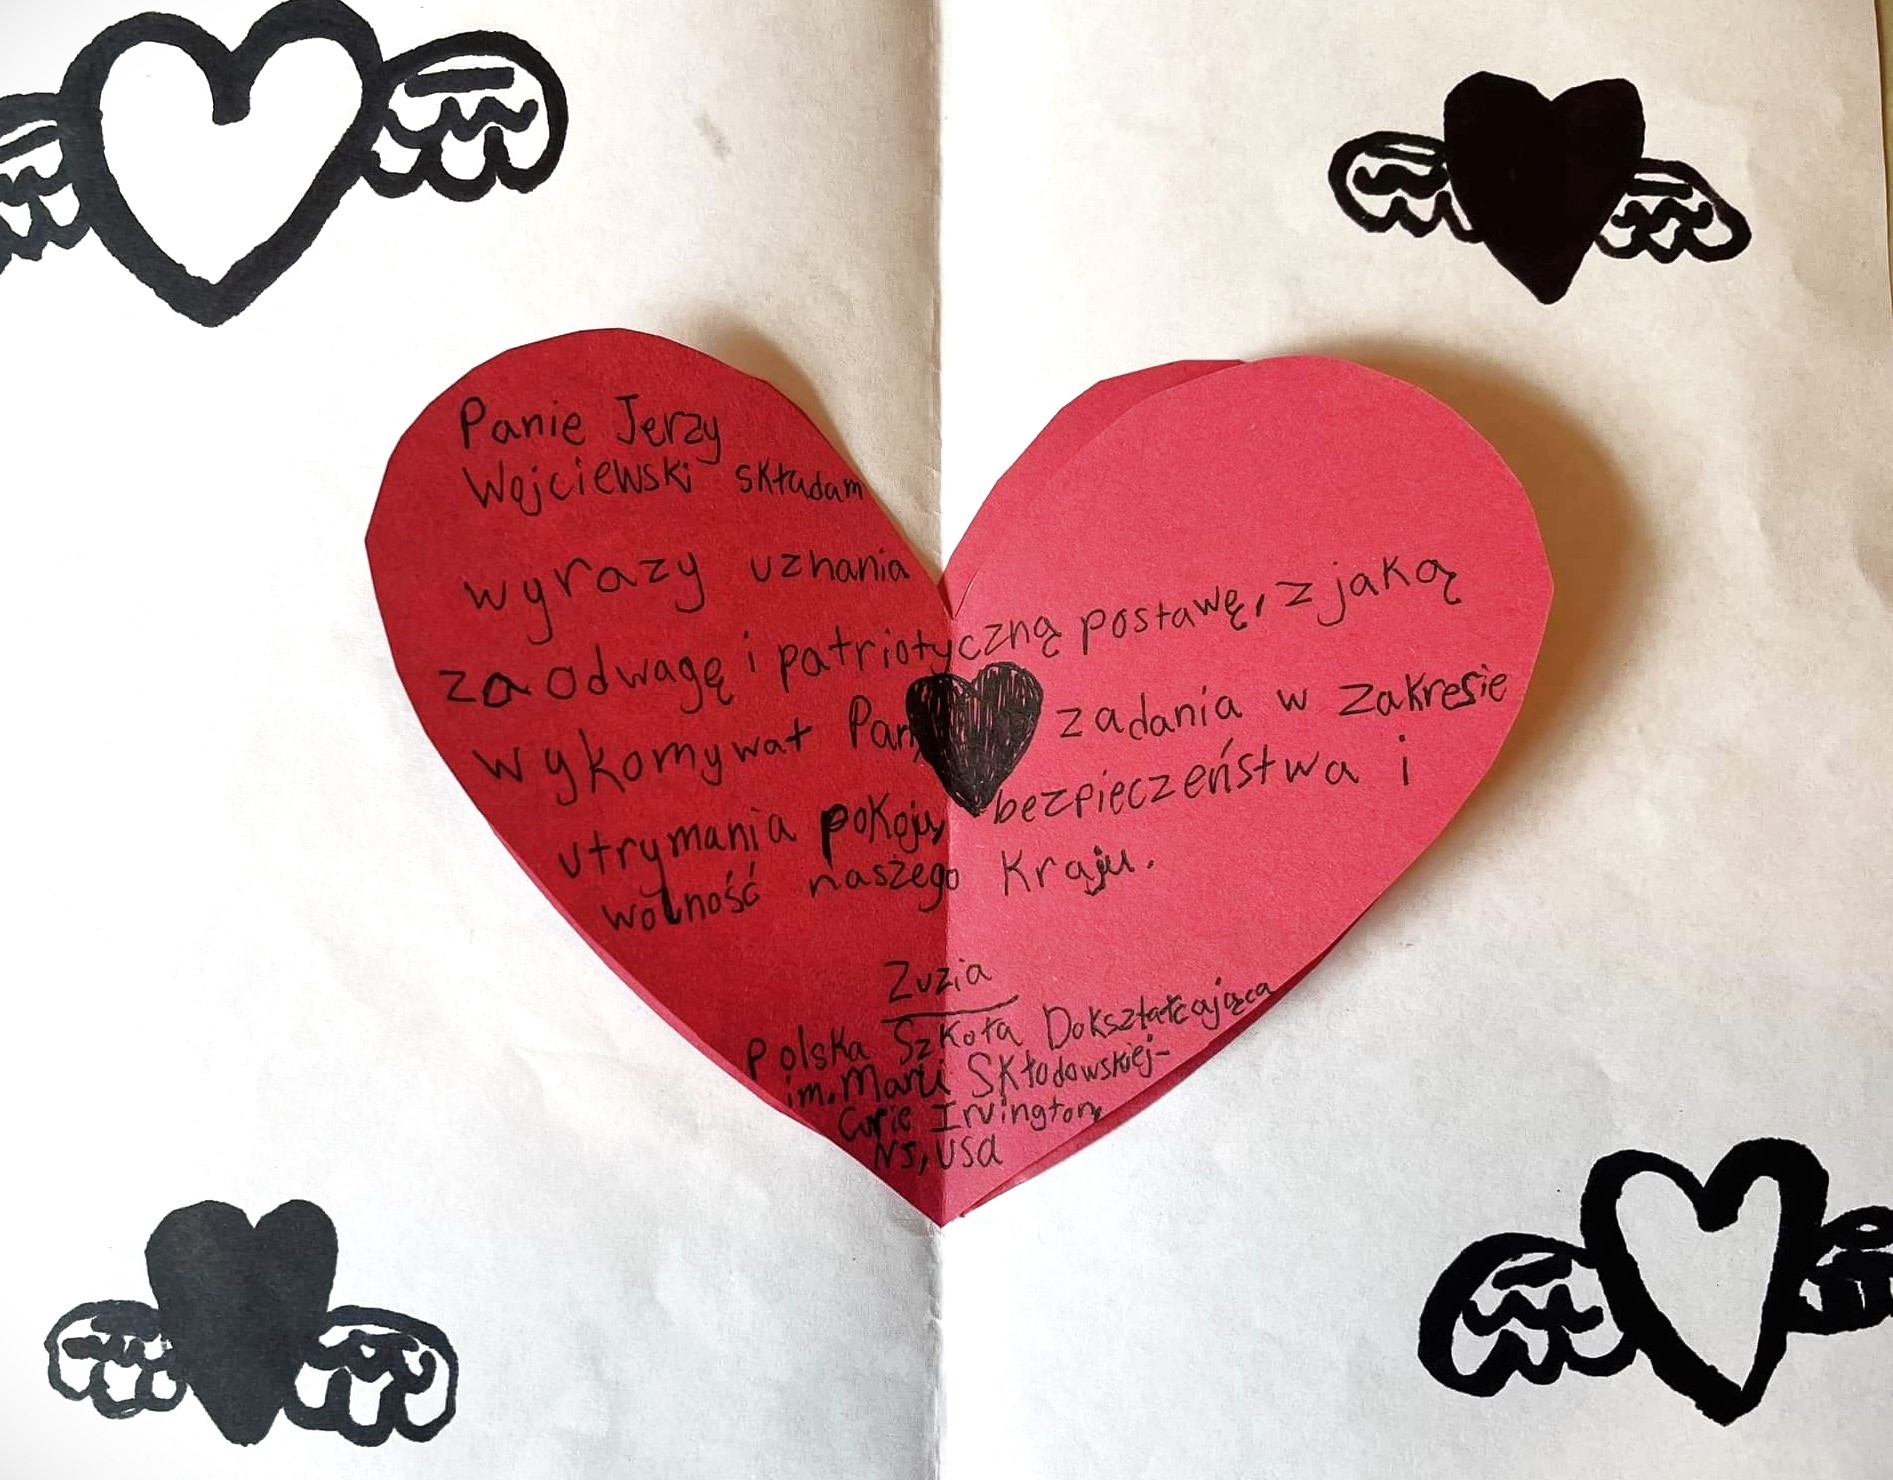 Panie Jerzy
Wojciewski składam
wyrazy uznania
za odwagę i patriotyczną postawę, z jaką
wykomywał Pan zadania w zakresie
utrymania pokoju, bezpieczeństwa i
wolność naszego Kraju.
Zuzia
Polska Szkoła Dokształcająca
im. Marii Skłodowskiej-
Curie Irvington,
NJ, USA